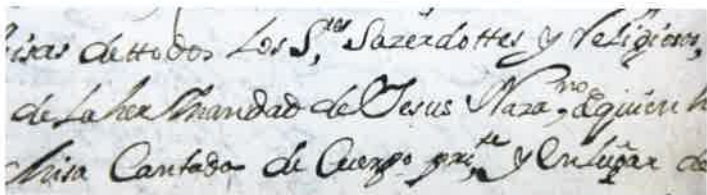 isas dettodos Los S.res Sazerdottes y Religiosos,
de La her Mandad de Jesus Naza,no aquien h
Misa Cantada de Cuerpo pri,te y En lugar de